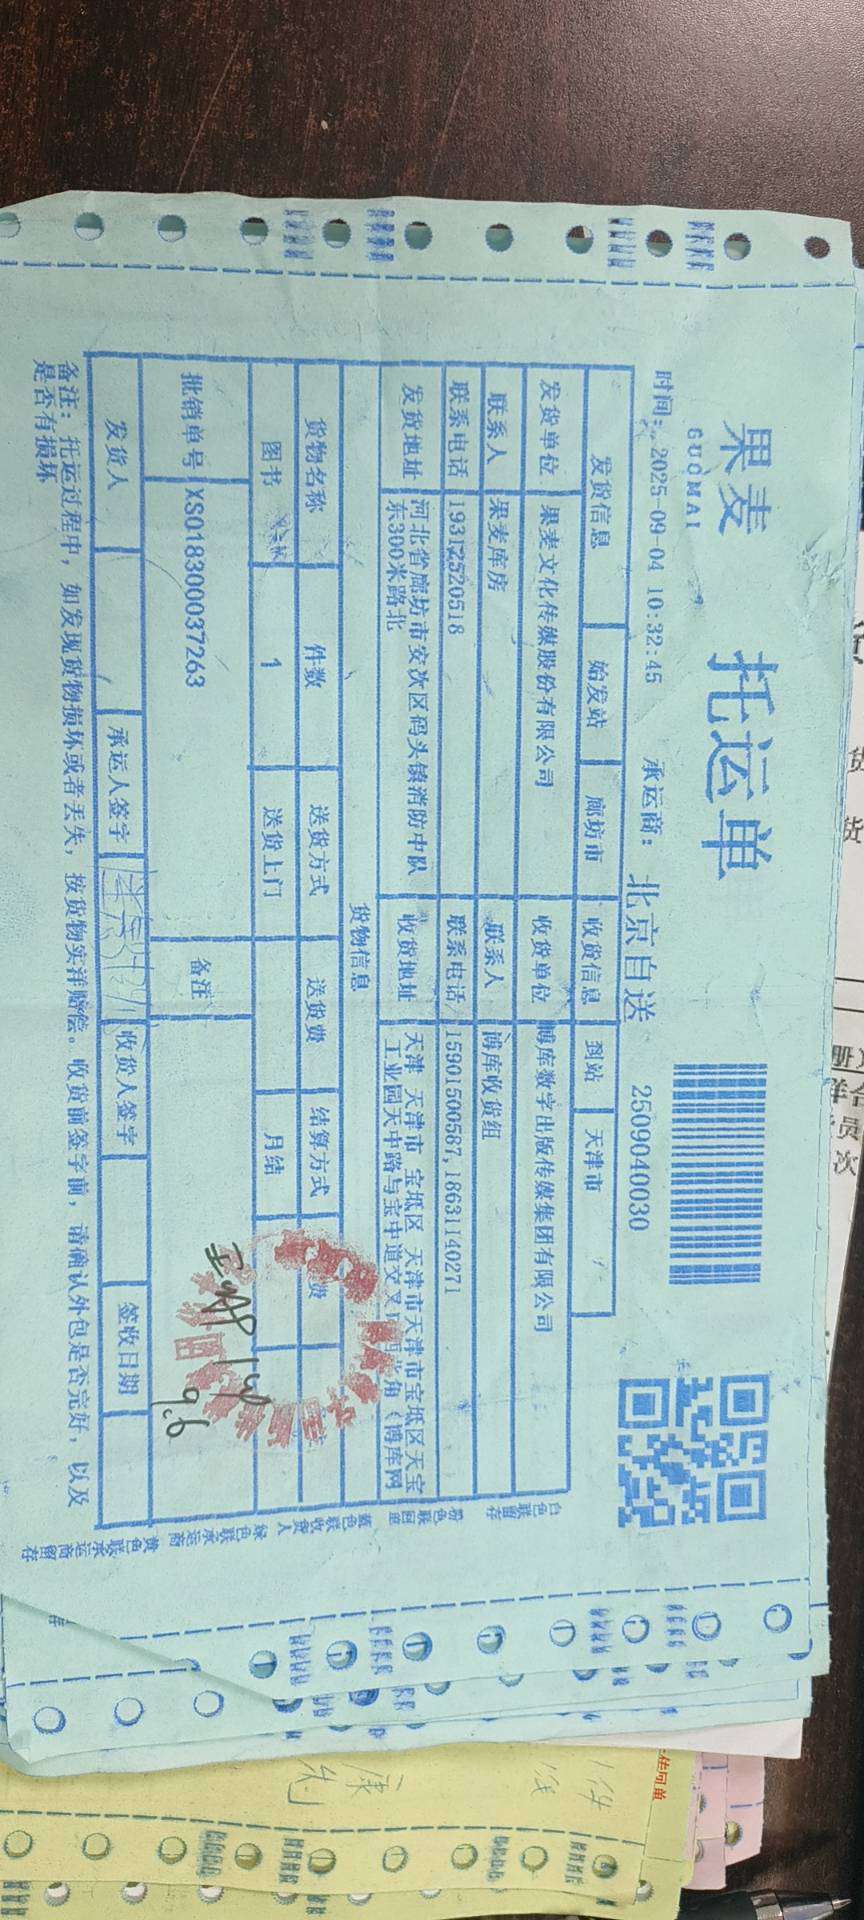 果麦
GUOMAI
托运单
时间: 2025-09-04 10:32:45 承运商: 北京自送 2509040030
发货信息 始发站 廊坊市 收货信息 到站 天津市
发货单位 果麦文化传媒股份有限公司 收货单位 博库数字出版传媒集团有限公司
联系人 果麦库房 联系人 博库收货组
联系电话 19312520518 联系电话 15901500587,18631140271
发货地址 河北省廊坊市安次区码头镇消防中队东300米路北 收货地址 天津 天津市 宝坻区 天津市天津市宝坻区天宝工业园天中路与宝中道交叉口西北角（博库网
货物信息
货物名称 件数 送货方式 送货费 结算方式 费
图书 1 送货上门 月结
批销单号 XS018300037263 备注
9.6
发货人 承运人签字 收货人签字 签收日期
备注: 托运过程中, 如发现货物损坏或者丢失, 按货物实洋赔偿。收货前签字前, 请确认外包是否完好, 以及
是否有损坏
白色联留存
粉色联回库
蓝色联收货人
绿色联承运商
黄色联承运商留存